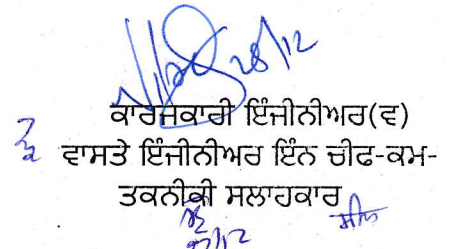 28/12
ਕਾਰਜਕਾਰੀ ਇੰਜੀਨੀਅਰ(ਵ)
ਵਾਸਤੇ ਇੰਜੀਨੀਅਰ ਇੰਨ ਚੀਫ-ਕਮ-
ਤਕਨੀਕੀ ਸਲਾਹਕਾਰ